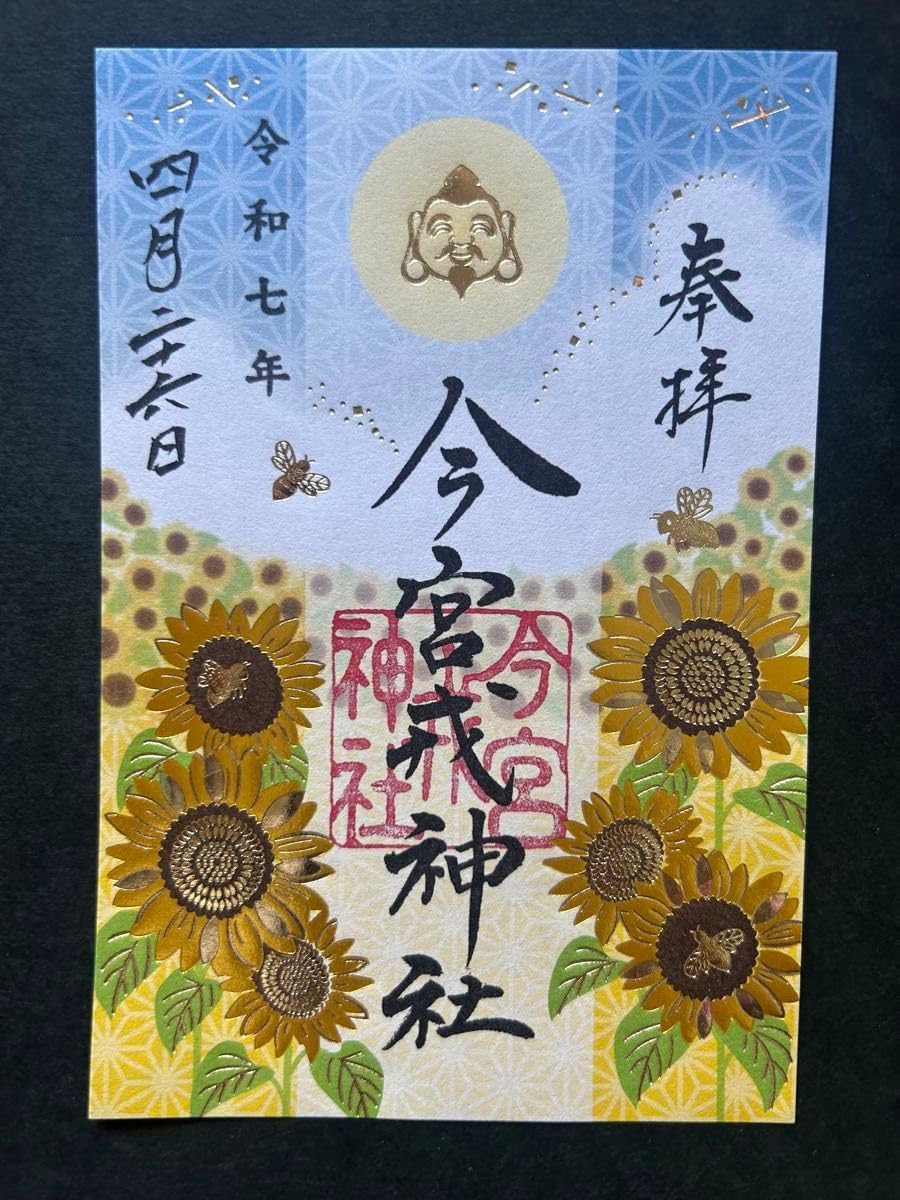 奉拝
今宮戎神社
今宮
戎
神社
令和七年
四月二十六日